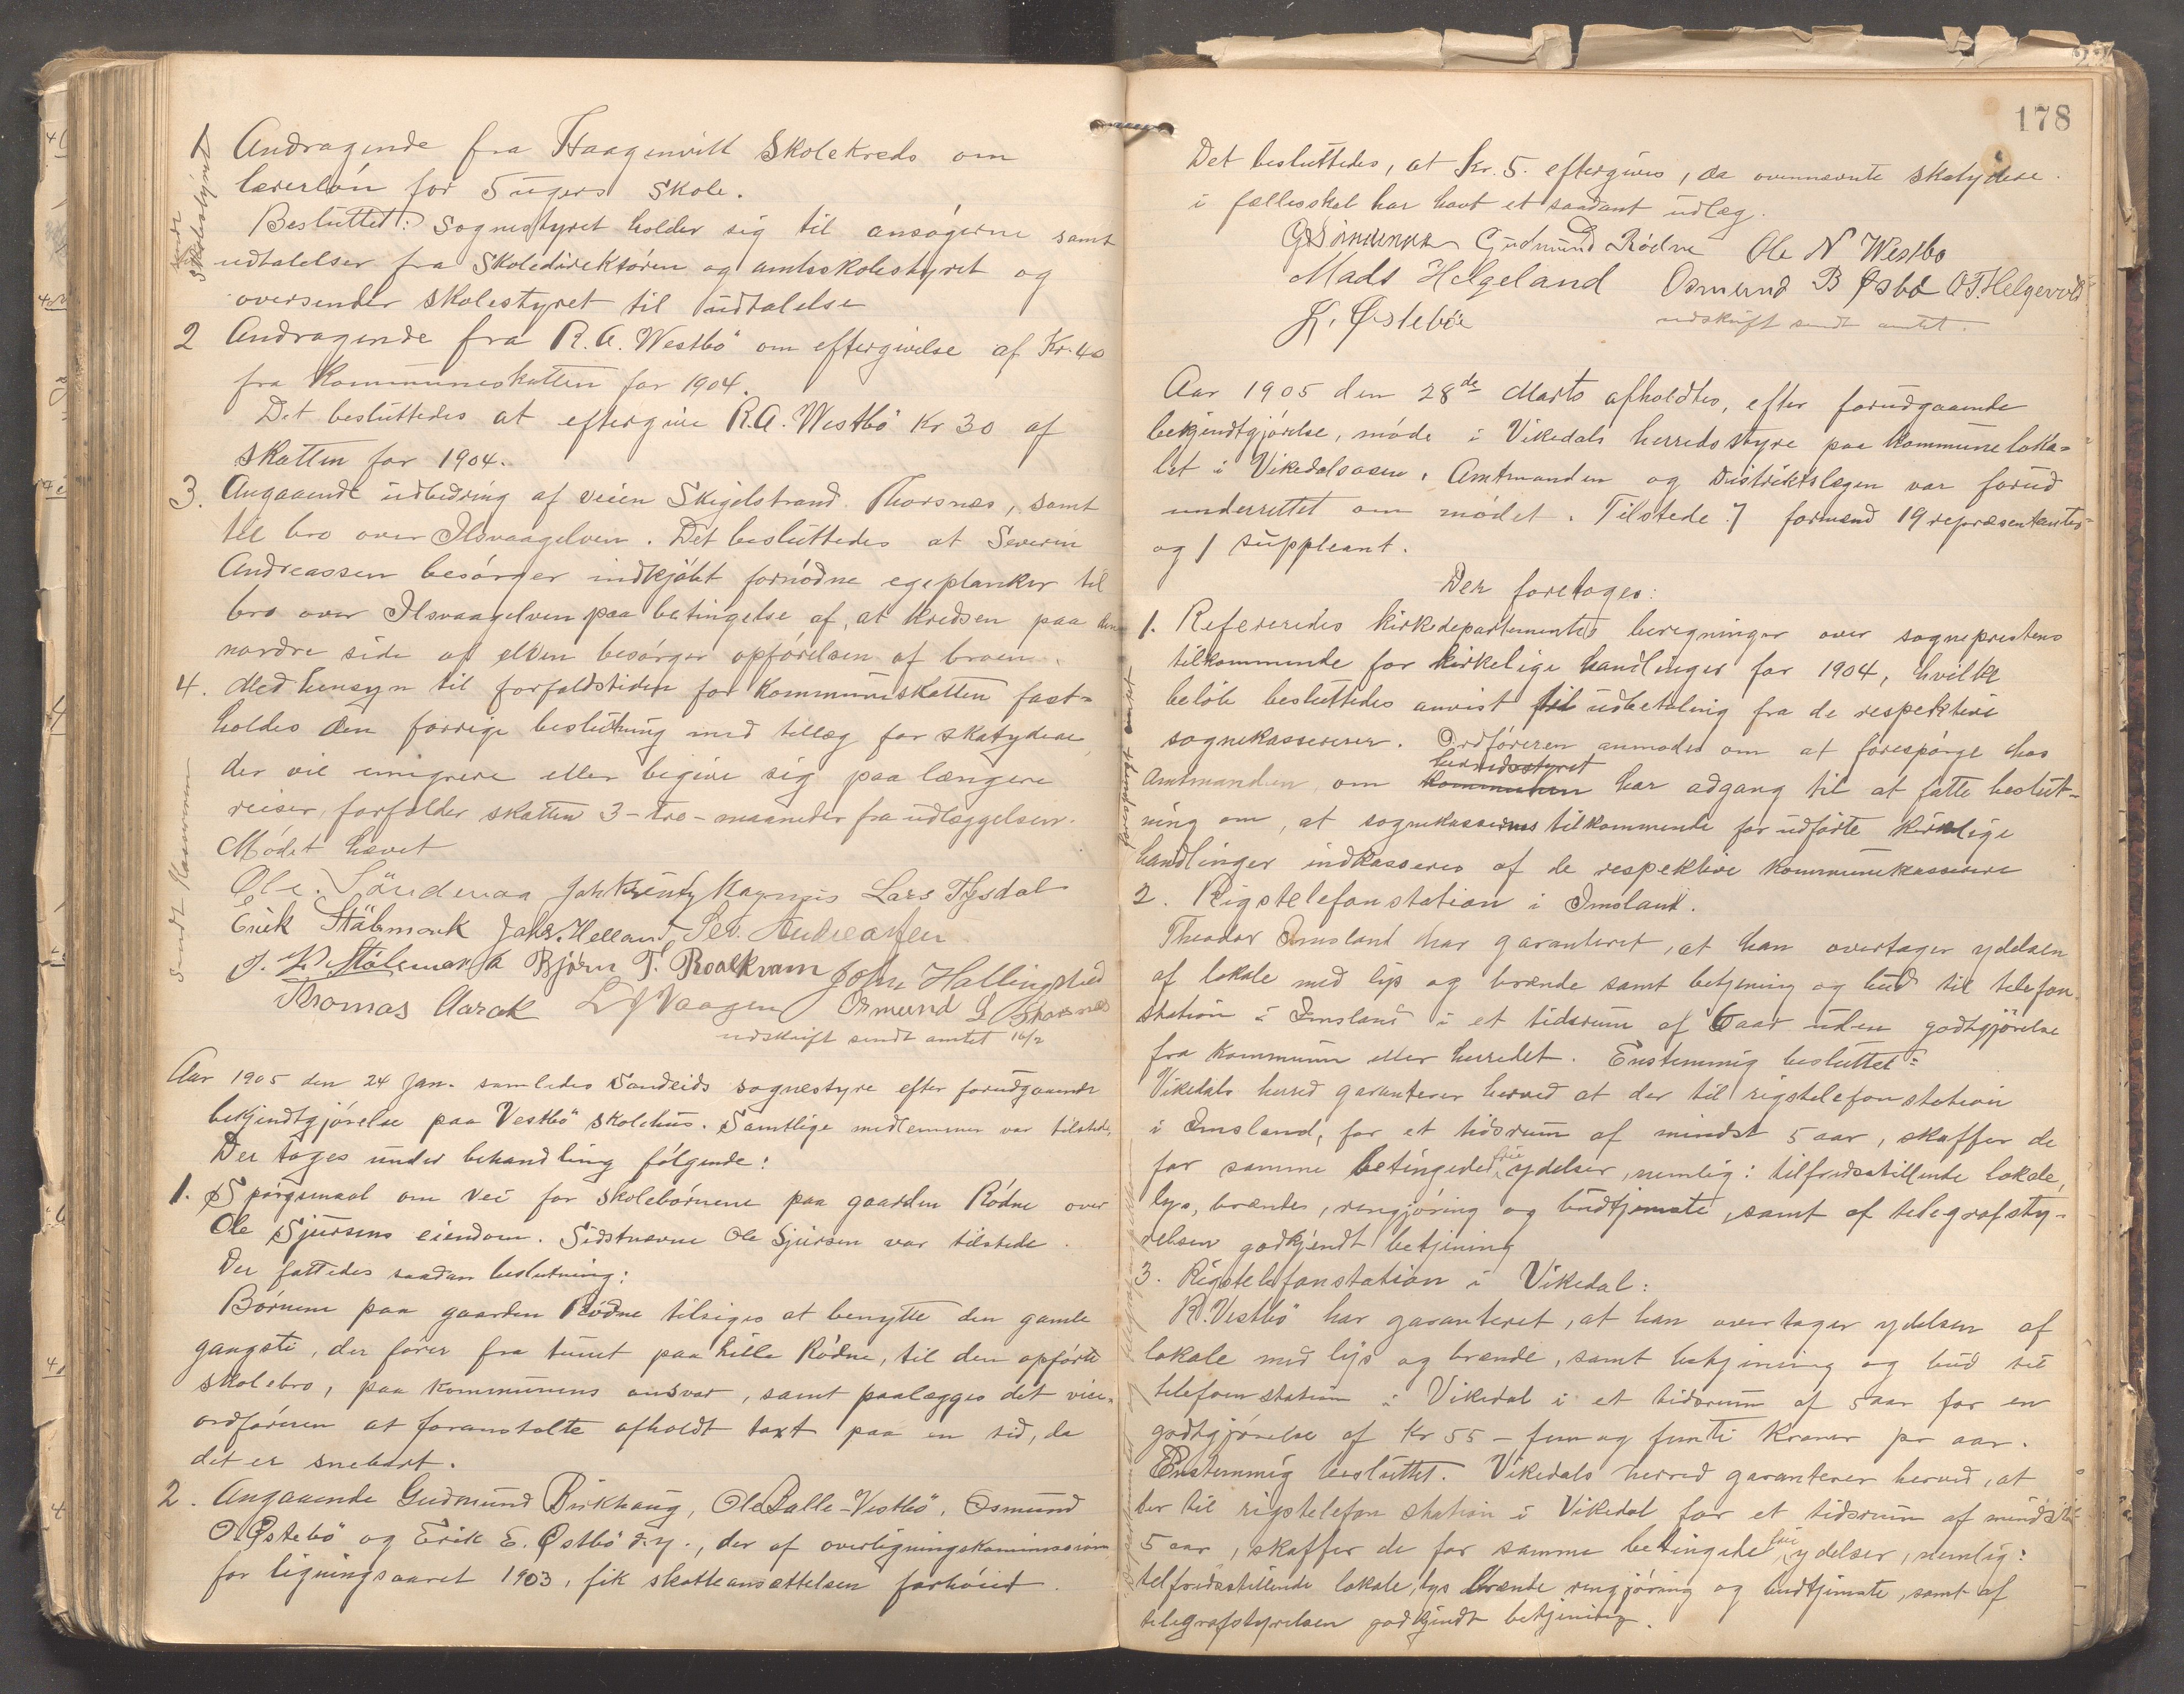 1 Andragende fra Haagenvik Skolekreds om
lærerløn for 5 ugers Skole.
sendt Skolestyret
Besluttet: Sognestyret holder sig til ansøgerne samt
udtalelser fra Skoledirektøren og amtsskolestyret og
oversender skolestyret til udtalelse
2 Andragende fra R. A. Westbö om eftergivelse af Kr. 40
fra Kommuneskatten for 1904.
Det besluttedes at eftergive R. A. Westbö Kr 30 af
skatten for 1904.
3. Angaaende udbedring af veien Skigelstrand Thorsnes, samt
til bro over Ilsvaagelven. Det besluttedes at Severin
Andreassen besørger indkjøbt fornødne egeplanker til
bro over Ilsvaagelven paa betingelse af, at kredsen paa den
nordre side af elven besørger opførelsen af broen.
4. Med hensyn til forfaldstiden for Kommuneskatten fast-
holdes den forrige beslutning med tillæg for skatydere
der vil emigrere eller begive sig paa længere
reiser, forfalder skatten 3 - tre - maaneder fra udlæggelsen.
Mødet hævet
sendt Kassereren
Ole. Söndenaa Lars Tysdal
Erik Stålemark Johs. Helland, Sev. Andreassen
J. Stålemark Bjørn T. Roalkvam John Hallingstad
Thomas Aarak L J Vaagen Osmund L Thorsnes
udskrift sendt amtet 16/2
Aar 1905 den 24 Jan. samledes Sandeids sognestyre efter forudgaaende
bekjendtgjørelse paa Vestbö skolehus. Samtlige medlemmer var tilstede.
Der toges under behandling følgende:
1. Spørgsmaal om vei for skolebørnene paa gaarden Rødne over
Ole Sjursens eiendom. Sidstnævne Ole Sjursen var tilstede.
Der fattedes saadan beslutning:
Børnene paa gaarden Rødne tilsiges at benytte den gamle
gangsti, der fører fra tunet paa Lille Rødne, til den opførte
skolebro, paa kommunens ansvar, samt paalægges det vice-
ordføreren at foranstalte afholdt taxt paa en tid, da
det er snebart.
2. Angaaende Gudmund Birkhaug, Ole Balle-Vestbö, Osmund
O Østebö og Erik E. Østbö d.y., der af overligningskommissionen
for ligningsaaret 1903, fik skatteansættelsen forhøiet.
178
Det besluttedes, at Kr. 5. eftergives, da ovennævnte skatydere
i fællesskab har havt et saadant udlæg.
G Söndenaa Gudmund Rødne Ole N Westbo
Mads Helgeland Osmund B Østbø O T. Helgevold
K. Østeböe
udskrift sendt amtet.
Aar 1905 den 28de Marts afholdtes, efter forudgaaende
bekjendtgjørelse, møde i Vikedals herredsstyre paa kommuneloka-
let i Vikedalsosen. Amtmanden og Distriktslægen var forud
underrettet om mødet. Tilstede 7 formænd 19 repræsentanter
og 1 suppleant.
Der foretoges:
1. Refereredes kirkedepartementets beregninger over sogneprestens
tilkommende for kirkelige handlinger for 1904, hvilke
beløb besluttedes anvist til udbetaling fra de respektive
sognekasserer. Ordføreren anmodes om at forespørge hos
Amtmanden om herredsstyret kommunen har adgang til at fatte beslut-
ning om, at sognekassernes tilkommende for udførte kirkelige
handlinger indkasseres af de respektive kommunekasserere
forespurgt amtet
2. Rigstelefonstation i Imsland.
Theodor Imsland har garanteret, at han overtager ydelsen
af lokale med lys og brænde samt betjening og bud til telefon-
station i Imsland i et tidsrum af 5 aar uden godtgjørelse
fra Kommunen eller herredet. Enstemmig besluttet:
Vikedals herred garanterer herved at der til rigstelefonstation
i Imsland, for et tidsrum af mindst 5 aar, skaffer de
for samme betingede frie ydelser, nemlig: tilfredsstillende lokale,
lys, brænde, rengjøring og budtjeneste, samt af telegrafsty-
relsen godkjendt betjening
3. Rigstelefonstation i Vikedal:
R. Vestbö har garanteret, at han overtager ydelsen af
lokale med lys og brænde, samt betjening og bud til
telefonstation i Vikedal i et tidsrum af 5 aar for en
godtgjørelse af Kr 55 - fem og femti Kroner pr aar.
Enstemmig besluttet. Vikedals herred garanterer herved, at
der til rigstelefonstation i Vikedal for et tidsrum af mindst
5 aar, skaffer de for samme betingede frie ydelser, nemlig:
tilfredsstillende lokale, lys brænde rengjøring og budtjeneste, samt af
telegrafstyrelsen godkjendt betjening.